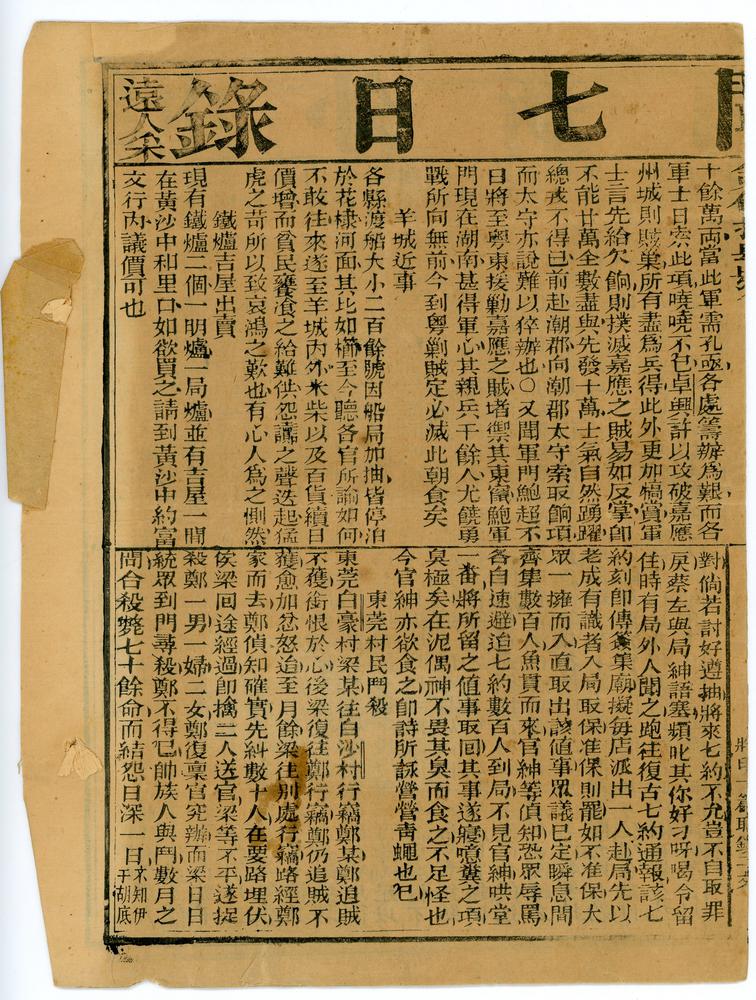 七日錄
遠人采
十餘萬両當此軍需孔亟各處籌辦為艱而各
軍士日索此項嘵嘵不已卓興許以攻破嘉應
州城則賊巢所有盡為兵得此外更加犒賞軍
士言先給欠餉則撲滅嘉應之賊易如反掌卽
不能廿萬全數盡與先發十萬士氣自然踴躍
總戎不得已前赴潮郡向潮郡太守索取餉項
而太守亦說難以猝辦也○又聞軍門鮑超不
日將至粤東援勦嘉應之賊堵禦其東竄鮑軍
門現在潮南甚得軍心其親兵千餘人尤饒勇
戰所向無前今到粤勦賊定必滅此朝食矣
羊城近事
各縣渡船大小二百餘號因船局加抽皆停泊
於花棣河面其比如櫛至今聽各官所諭如何
不敢往來遂至羊城內外米柴以及百貨續日
價增而貧民饔飧之給難供怨讟之聲迭起猛
虎之苛所以致哀鴻之歎也有心人為之惻然
鐵爐吉屋出賣
現有鐵爐二個一明爐一局爐並有吉屋一間
在黃沙中和里口如欲買之請到黃沙中約富
文行內議價可也
對倘若討好遵抽將來七約不允豈不自取罪
戾蔡左與局紳語塞頻叱其你好刁呀喝令留
住時有局外人聞之跑往復古七約通報該七
約刻卽傳簽集廟擬每店派出一人赴局先以
老成有識者入局取保准保則罷如不准保大
眾一擁而入直取出該值事眾議已定瞬息間
齊集數百人魚貫而來官紳等偵知恐眾辱罵
各自速避迨七約數百人到局不見官紳哄堂
一番將所留之值事取囘其事遂寢噫糞之項
臭極矣在泥偶神不畏其臭而食之不足怪也
今官紳亦欲食之卽詩所詠營營靑蠅也已
東莞村民鬥殺
東莞白豪村梁某往白沙村行竊鄭某鄭追賊
不獲銜恨於心後梁復往鄭行竊鄭仍追賊不
獲愈加忿怒迨至月餘梁往別處行竊路經鄭
家而去鄭偵知確實先糾數十人在要路埋伏
俟梁囘途經過卽擒二人送官梁等不平遂捉
殺鄭一男一婦二女鄭復稟官究辦而梁日日
統眾到門尋殺鄭不得已帥族人與鬥數月之
間合殺斃七十餘命而結怨日深一日不知伊
于胡底